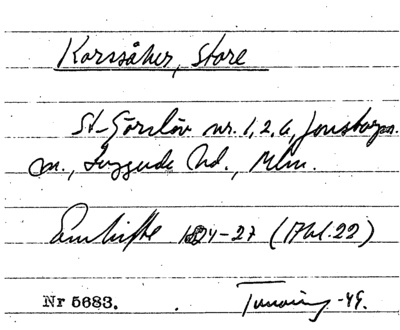 Korssåker, store
St. Görslöv nr. 1, 2, 6, Jonstorps
sn., Luggude hd., Mlm.
Enskifte 1824-27 (Akt 22)
Nr 5683. -49.